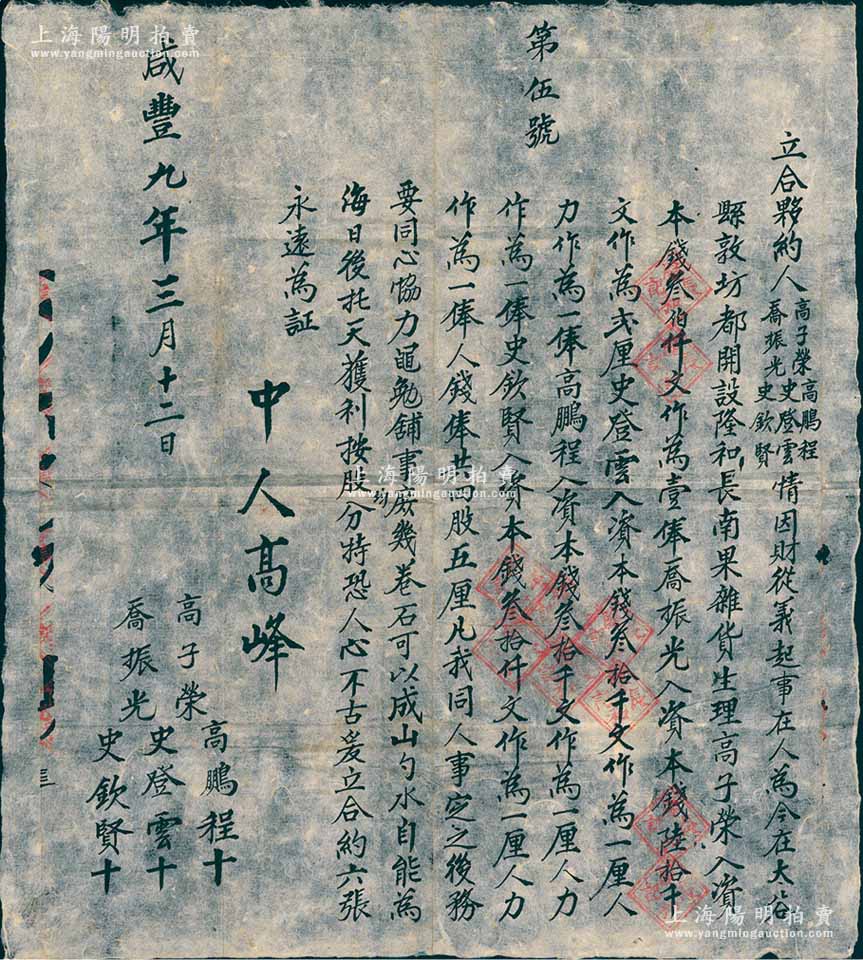 第伍號
立合夥約人高子榮高鵬程喬振光史登雲史欽賢情因財從義起事在人為今在太谷
縣敦坊都開設隆和長南果雜貨生理高子榮入資
本錢叁伯仟文作為壹俸喬振光入資本錢陸拾千
文作為弍厘史登雲入資本錢叁拾千文作為一厘人
力作為一俸高鵬程入資本錢叁拾千文作為一厘人力
作為一俸史欽賢入資本錢叁拾仟文作為一厘人力
作為一俸人錢俸共股五厘凡我同人事定之後務
要同心恊力黽勉舖事庶幾卷石可以成山勺水自能為
海日後托天獲利按股分特恐人心不古爰立合約六張
永遠為証
中人高峰
高子榮
高鵬程十
喬振光
史登雲十
史欽賢十
咸豐九年三月十二日
上海陽明拍賣
www.yangmingauction.com
上海陽明拍賣
www.yangmingauction.com
上海陽明拍賣
www.yangmingauction.com